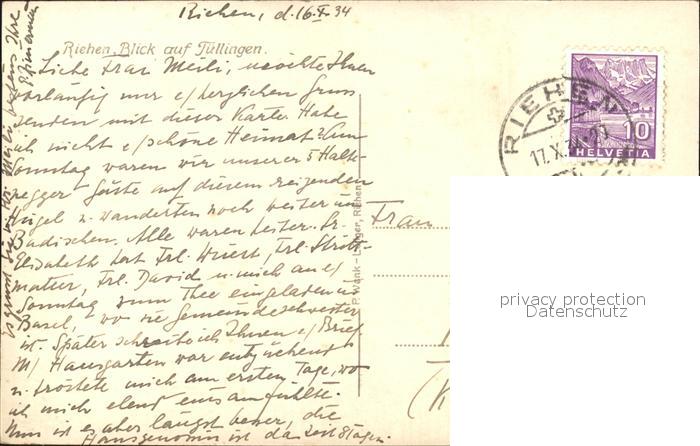 Riehen, d. 16. X. 34
Riehen, Blick auf Tüllingen.
Liebe Frau Meili, möchte Ihnen
vorläufig nur e/herzlichen Gruss
senden mit dieser Karte. Habe
ich nicht e/schöne Heimat? Am
Sonntag waren wir unserer 5
egger Gäste auf diesem reizenden
Hügel u. wanderten noch weiter im
Badischen. Alle waren heiter. Sr.
Elisabeth hat Frl. Frl.
Frl. David u. mich auf e/
Sonntag zum Thee eingeladen in
Basel, wo sie Gemeindeschwester
ist. Später schreibe ich Ihnen e/Brief.
M/ Hausgarten war entzückend
u. tröstete mich am ersten Tage, wo
ich mich elend einsam fühlte.
Nun ist es aber längst besser, die
Hausgenossin ist da seit 8 Tagen.
Es grüsst Sie Meili bestens Ihre
Frau
P. Wenk-Löliger, Riehen
RIEHEN
17.X.
10
HELVETIA
privacy protection
Datenschutz